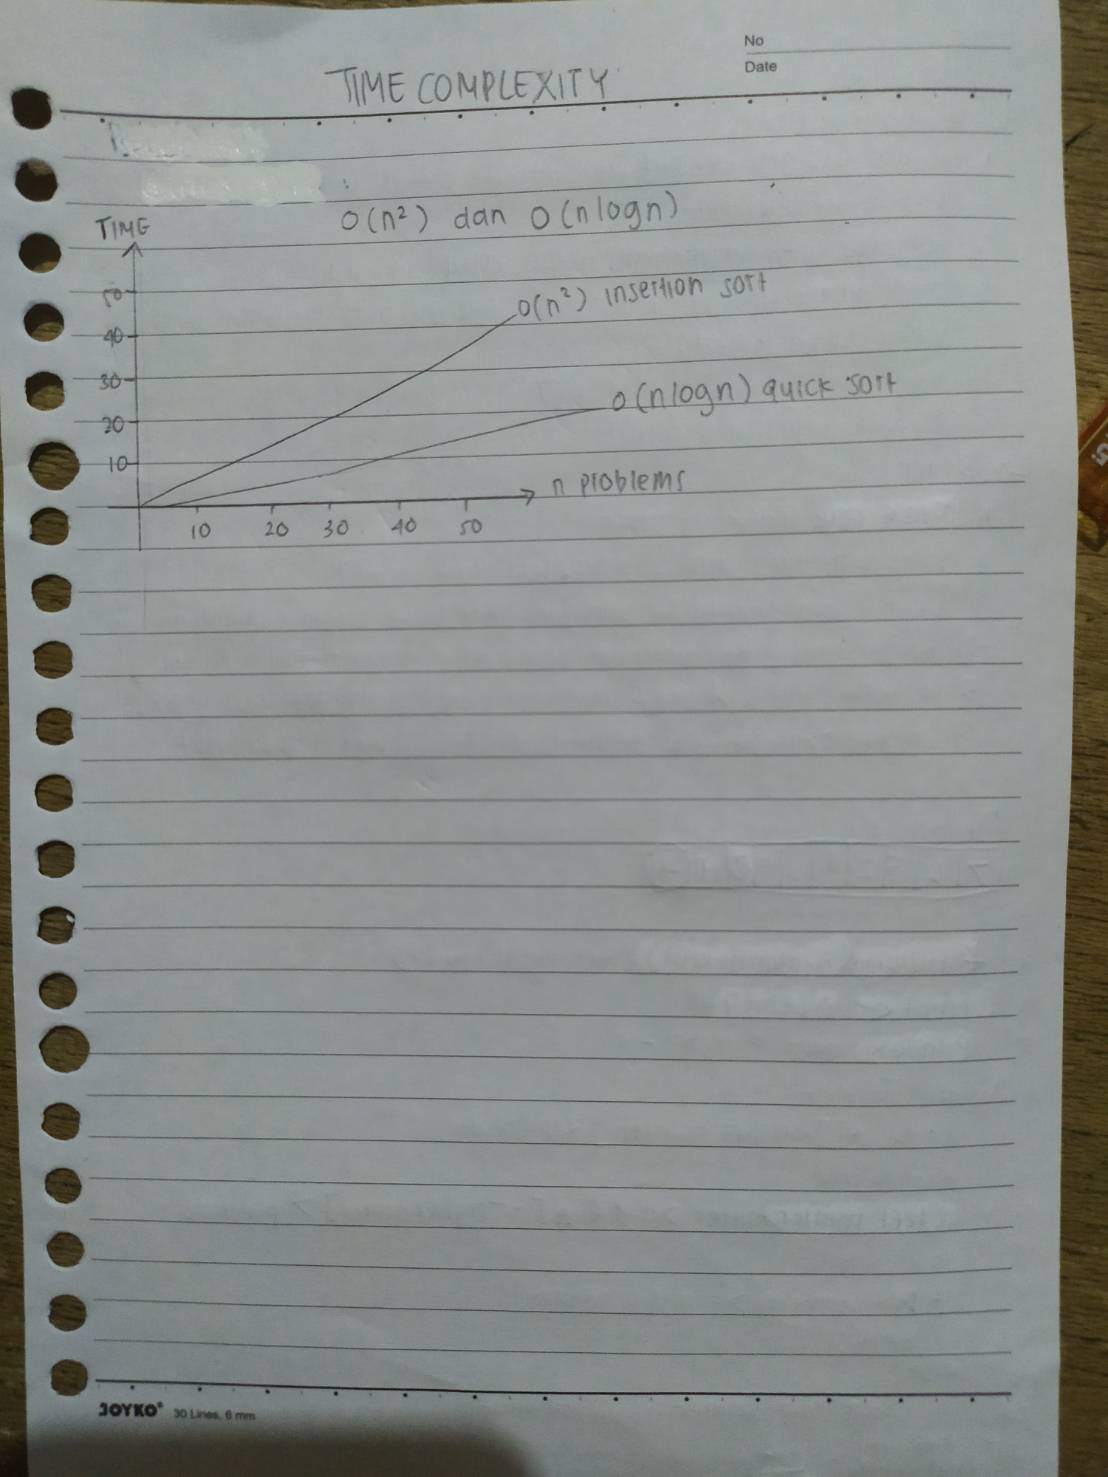 No
Date
TIME COMPLEXITY
O(n²) dan O(nlogn)
TIME
50
O(n²) insertion sort
40
30
O(nlogn) quick sort
20
10
n problems
10 20 30 40 50
JOYKO® 30 Lines, 6 mm